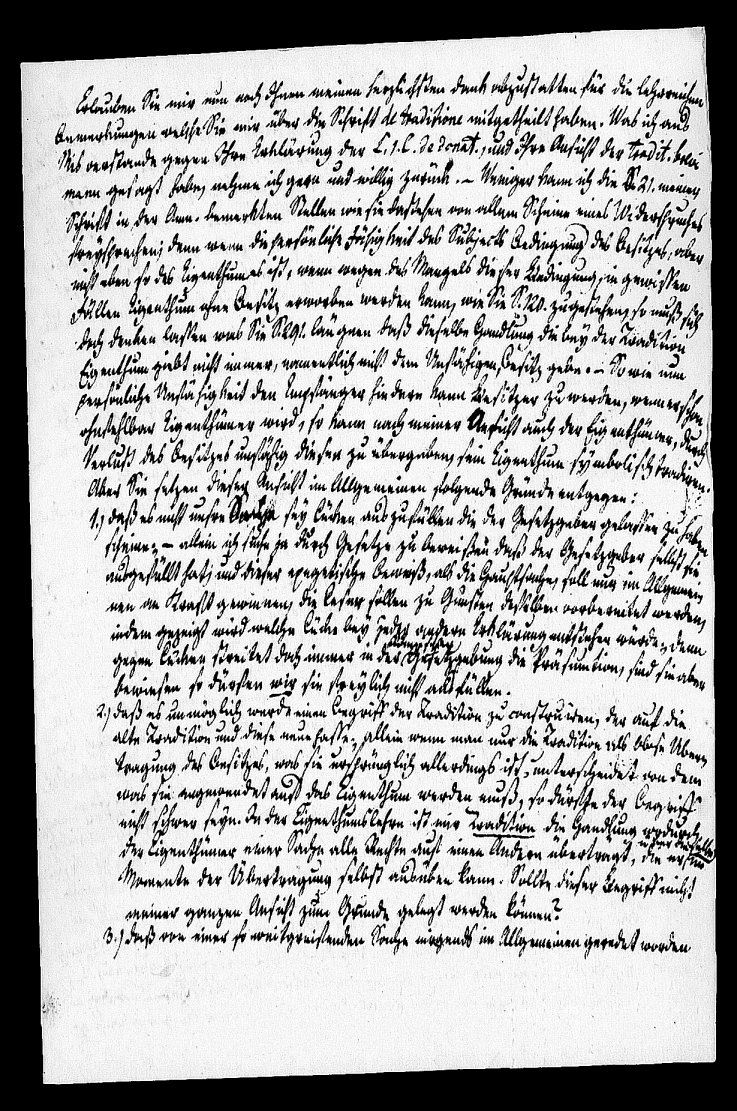 Erlauben Sie mir nun noch Ihnen meinen herzlichsten Dank abzustatten für die lehrreichen
Anmerkungen welche Sie mir über die Schrift de traditione mitgetheilt haben. Was ich aus
Mis verstande gegen Ihre Erklärung der L. 1. C. de donat., und Ihre Ansicht der tradit. brevi
manu gesagt habe, nehme ich gern und willig zurück. – Weniger kann ich die § 21. meiner
Schrift in der Anm. bemerkten Stellen wie sie dastehen von allem Scheine eines Widerspruches
freysprechen; denn wenn die persönliche Fähigkeit des Subjects Bedingung des Besitzes, aber
nicht eben so des Eigenthumes ist, wenn wegen des Mangels dieser Bedingung, in gewissen
Fällen Eigenthum ohne Besitz erworben werden kann, wie Sie S. 120. zugestehen, so muß sich
doch denken lassen was Sie S. 291. läugnen daß dieselbe Handlung die bey der Tradition
Eigenthum giebt nicht immer, namentlich nicht dem Unfähigen, Besitz gebe. – So wie nun
persönliche Unfähigkeit den Empfänger hindern kann Besitzer zu werden, wenn er schon
ohnfehlbar Eigenthümer wird, so kann nach meiner Ansicht auch der Eigenthümer, durch
Verlust des Besitzes unfähig diesen zu übergeben, sein Eigenthum symbolisch tradiren.
Aber Sie setzen dieser Ansicht im Allgemeinen folgende Gründe entgegen:
1.) daß es nicht unsre Sache sey Lücken auszufüllen die der Gesetzgeber gelassen zu haben
scheine; – allein ich suche ja durch Gesetze zu beweißen daß der Gesetzgeber selbst sie
ausgefüllt hat; und dieser exegetische Beweiß, als die Hauptsache, soll nur im Allgemei
nen an Kraft gewinnen, die Leser sollen zu Gunsten desselben vorbereitet werden,
indem gezeigt wird welche Lücke bey jeder andern Erklärung entstehen würde; denn
gegen Lücken streitet doch immer in der Gesetzgebung die Präsumtion, sind sie aber
bewiesen so dürfen wir sie freylich nicht ausfüllen.
2.) daß es unmöglich werde einen Begriff der Tradition zu construiren, der auf die
alte Tradition und diese neue passe; allein wenn man nur die Tradition als blose Über
tragung des Besitzes, was sie ursprünglich allerdings ist, unterscheidet von dem
was sie angewendet auf das Eigenthum werden muß, so dürfte der Begriff
nicht schwer seyn. In der Eigenthumslehre ist mir Tradition die Handlung wodurch
der Eigenthümer einer Sache alle Rechte auf einen Andern überträgt, die er im
Momente der Übertragung selbst ausüben kann. Sollte dieser Begriff nicht
meiner ganzen Ansicht zum Grunde gelegt werden können?
3.) daß von einer so weitgreifenden Sache nirgends im Allgemeinen geredet worden